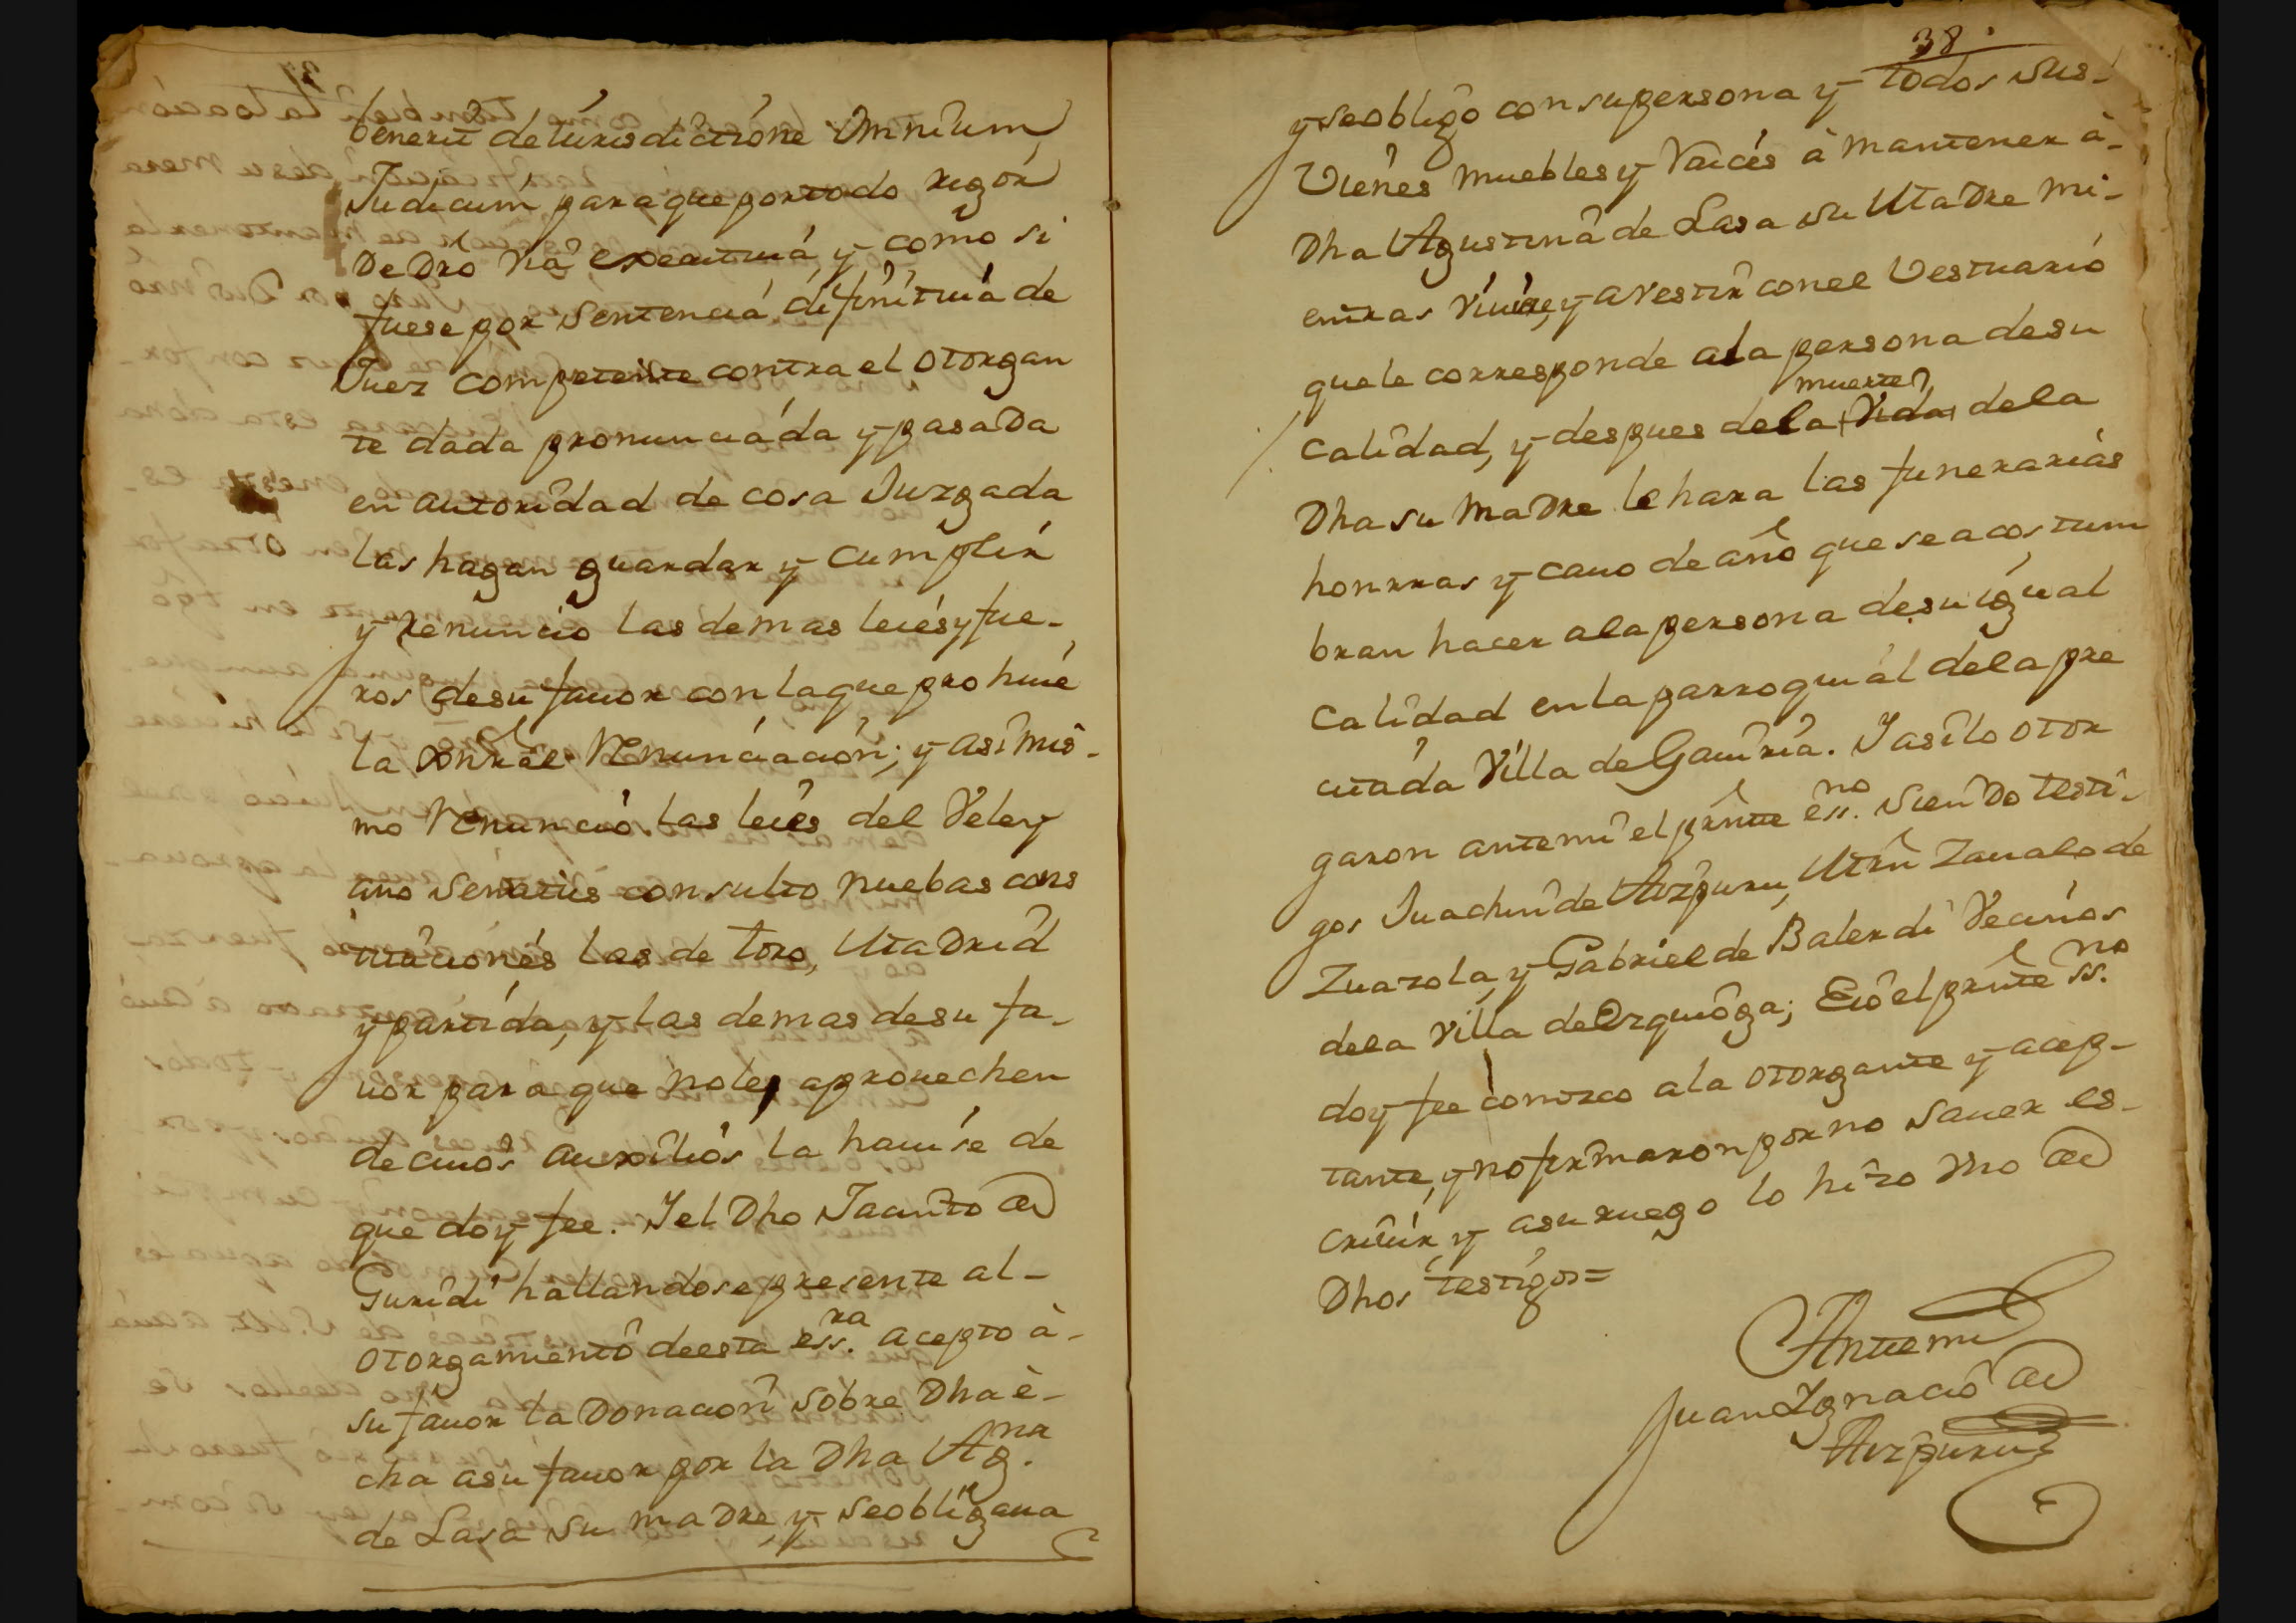 benerit de iurisdictione omnium
Judicum, para que por todo rigor
de dro via executiua, y como si
fuese por sentencia difinitiua de
Juez competente contra el otorgan
te dada pronunciada y pasada
en autoridad de cosa Juzgada
las hagan guardar y cumplir
y renuncio las demas leies y fue-
ros de su fauor con la que prohiue
la gnrâl Renunciacion; y asimis-
mo Renuncio las leies del Veley
ano Senatus consulto nuebas cons
tituciones las de toro, Madrid
y partida, y las demas de su fa-
uor para que no le aprouechen
de cuios auxilios la hauise de
que doy fee. Y el Dho Jacinto de
Guridi hallandose presente al-
otorgamiento de esta essra. acepto â-
su fauor la Donacion sobre Dha ê-
cha a su fauor por la Dha Agna.
de Lasa su madre, y se obligaua
38.
y se obligo con su persona y todos sus-
Vienes muebles y Raices â mantener â-
Dha Agustina de Lasa su Madre mi-
entras Viuiere, y a vestir con el Vestuario
que le corresponde a la persona de su
muerte
calidad, y despues de la Vida de la
Dha su Madre le hara las funerarias
honrras y cauo de año que se acostum
bran hacer a la persona de su igual
calidad en la parroquial de la pre
citada Villa de Gauiria. Y asi lo otor
garon ante mi el prnte essno. siendo testi-
gos Juachin de Aizpuru, Mrn Zaualo de
Zuazola, y Gabriel de Balerdi Vecinos
de la Villa de Ezquioga; E io el prnte ssno.
doy fee conozco a la otorgante y acep-
tante, y no firmaron por no sauer es-
criuir, y a su ruego lo hizo vno de
Dhos testigos=
Ante mi
Juan Ignacio de
Aizpuru